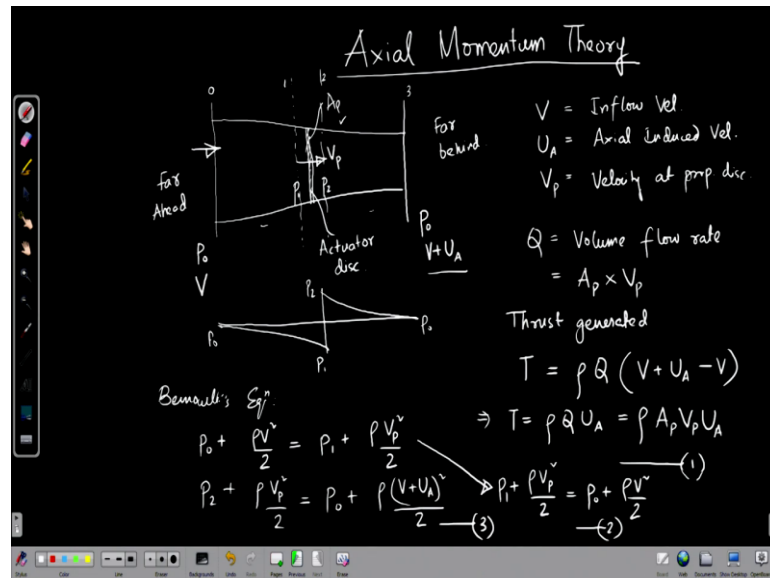 Axial Momentum Theory
0 1 2 3
A_P
V_P
Far Ahead
Far behind
P_1 P_2
Actuator disc
P_0
V
P_0
V+U_A
P_2
P_0 P_0
P_1
V = Inflow Vel.
U_A = Axial Induced Vel.
V_P = Velocity at prop disc.
Q = Volume flow rate
= A_P × V_P
Thrust generated
T = ρ Q (V + U_A − V)
⇒ T = ρ Q U_A = ρ A_P V_P U_A
(1)
Bernoulli's Eqⁿ.
P_0 + ρV²/2 = P_1 + ρV_P²/2
P_1 + ρV_P²/2 = P_0 + ρV²/2
(2)
P_2 + ρV_P²/2 = P_0 + ρ(V+U_A)²/2 (3)
Stylus Color Line Eraser Backgrounds Undo Redo Pages Previous Next Erase
Board Web Documents Show Desktop